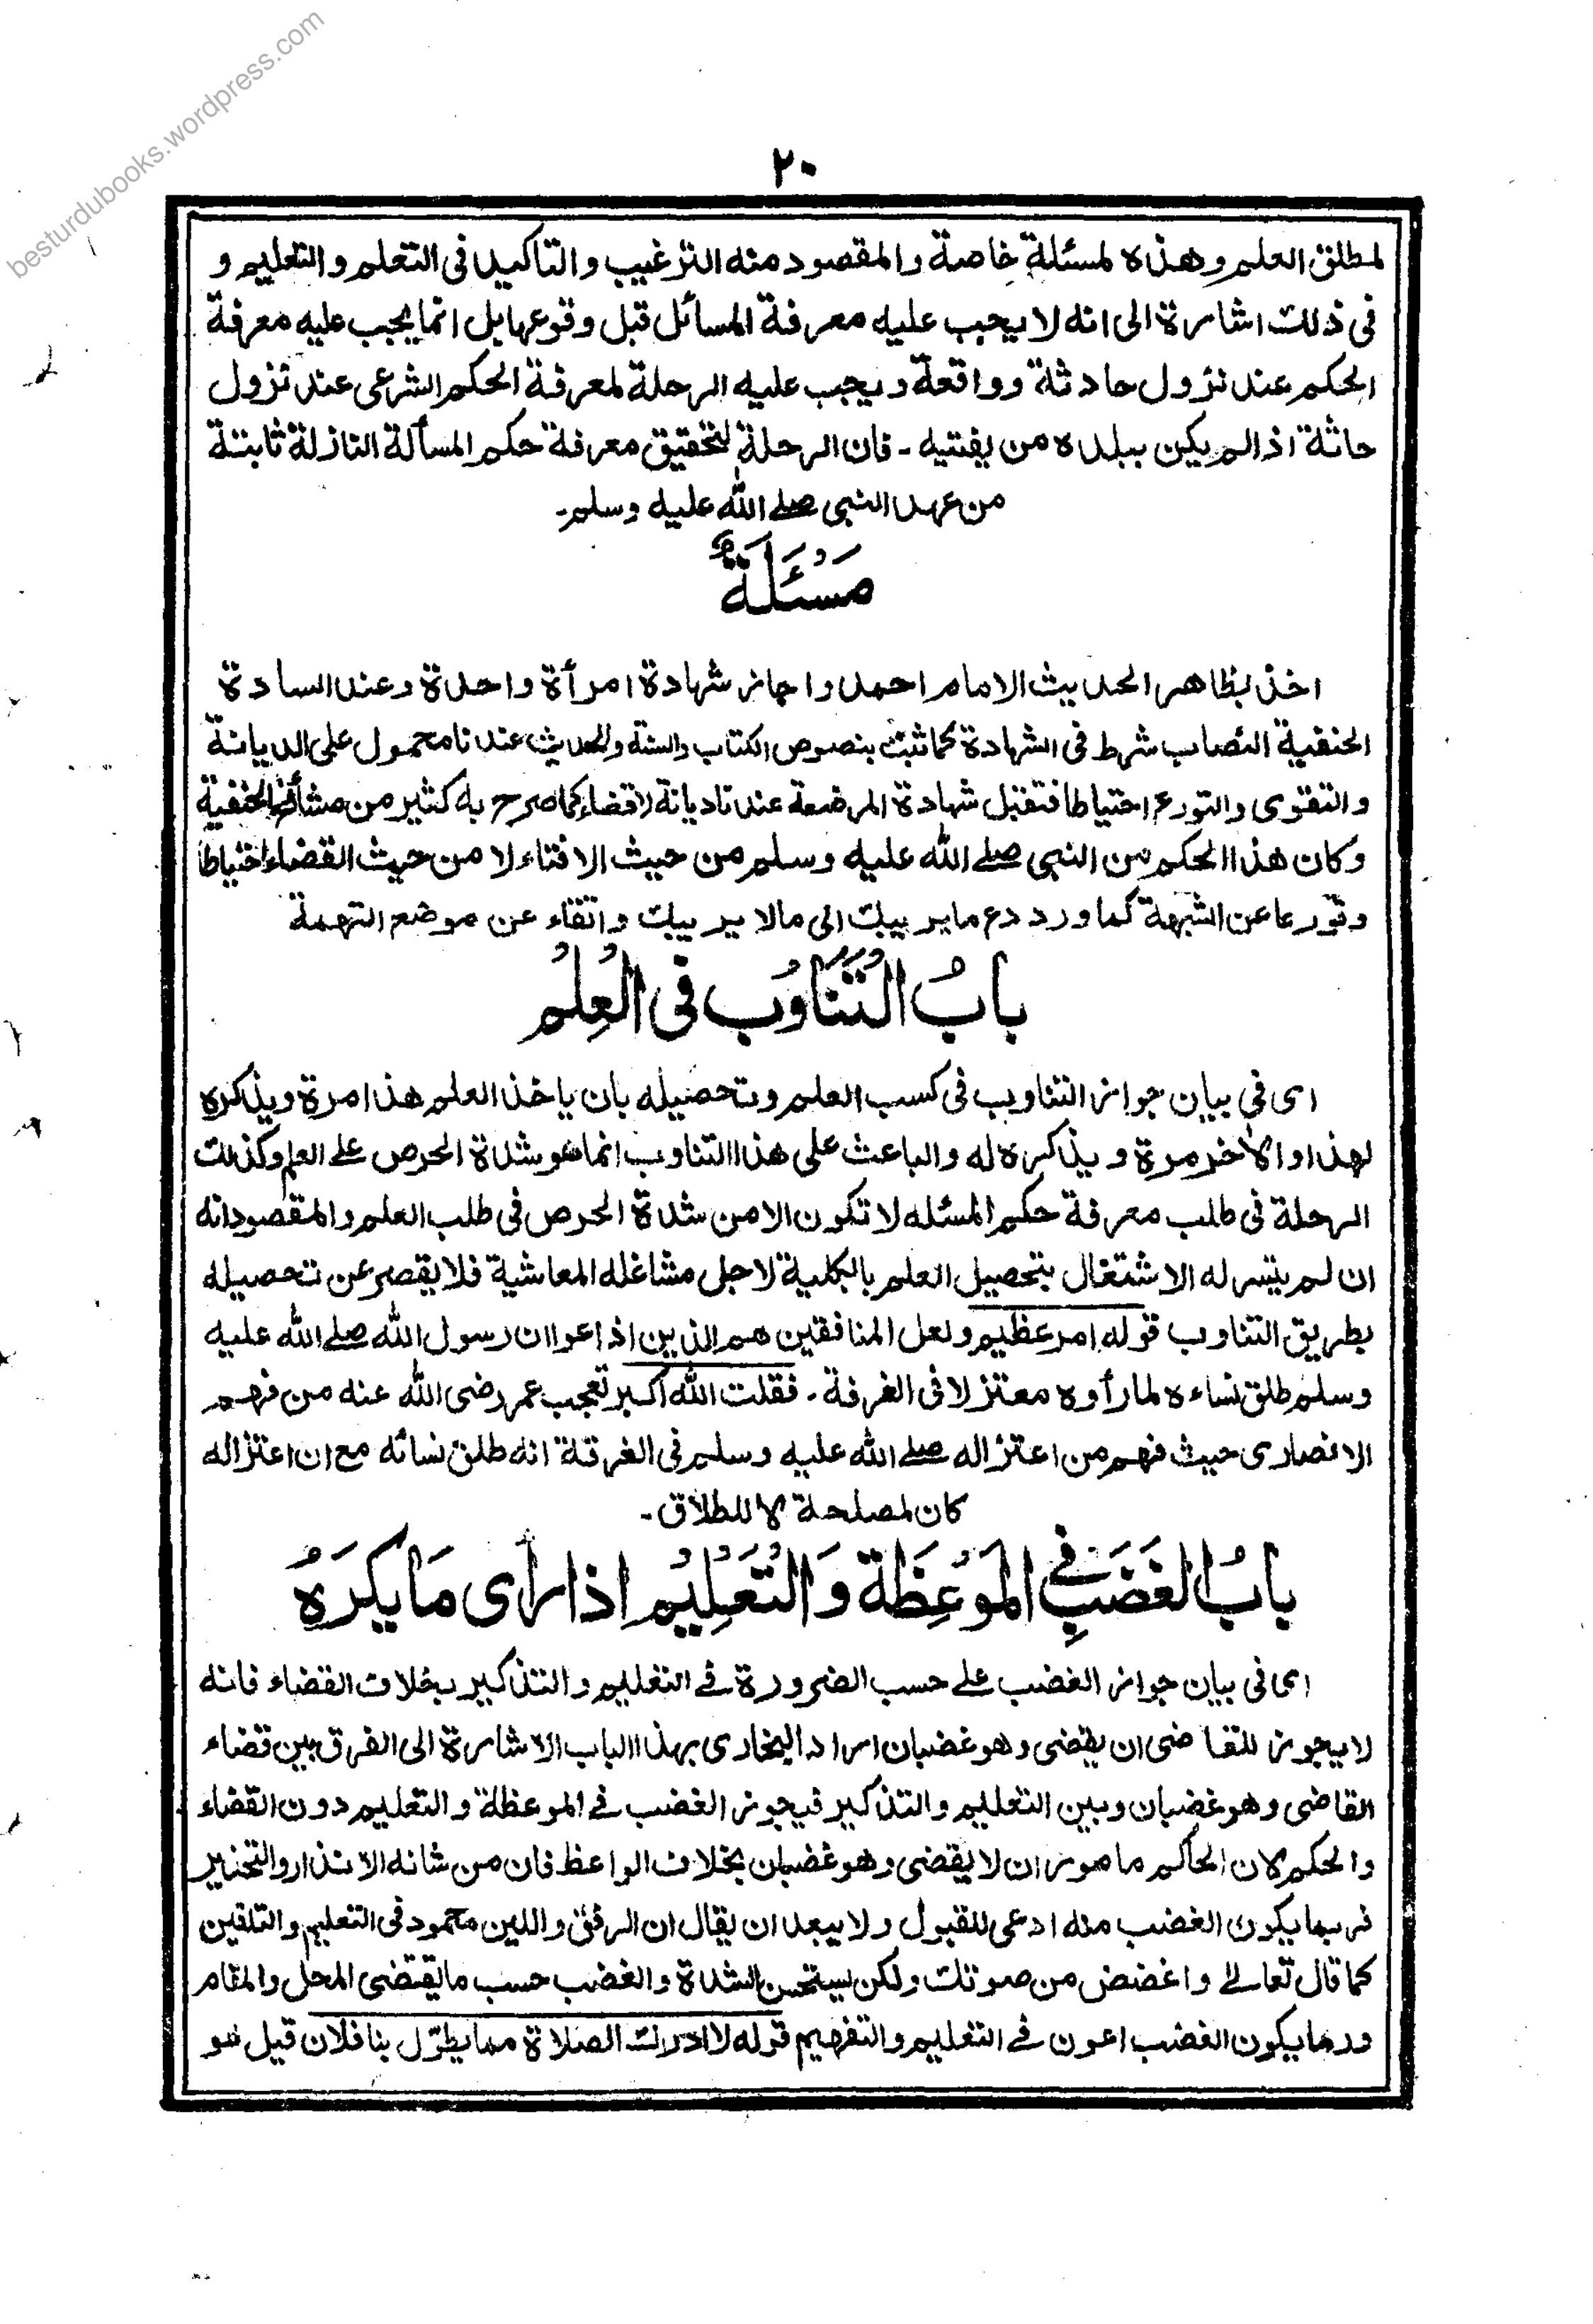 besturdubooks.wordpress.com
٢٠
لمطلق العلم وهذه لمسئلة خاصة والمقصود منه الترغيب والتاكيد فى التعلم والتعليم و
فى ذلك اشارة الى انه لا يجب عليه معرفة المسائل قبل وقوعها بل انما يجب عليه معرفة
الحكم عند نزول حادثة وواقعة ويجب عليه الرحلة لمعرفة الحكم الشرعى عند نزول
حاثة اذا لم يكن ببلده من يفتيه - فان الرحلة لتحقيق معرفة حكم المسألة النازلة ثابتة
من عهد النبى صلے الله عليه وسلم-
مَسْئَلَةٌ
اخذ بظاهر الحديث الامام احمد واجاز شهادة امرأة واحدة وعند السادة
الحنفية النصاب شرط فى الشهادة كما ثبت بنصوص الكتاب والسنة والحديث عندنا محمول على الديانة
والتقوى والتورع احتياطا فتقبل شهادة المرضعة عندنا ديانة لا قضاء كما صرح به كثير من مشائخنا الحنفية
وكان هذا الحكم من النبى صلے الله عليه وسلم من حيث الافتاء لا من حيث القضاء احتياطا
وتورعا عن الشبهة كما ورد دع ما يريبك الى مالا يريبك واتقاء عن موضع التهمة
بابُ التَّنَاوُبِ فى الْعِلْمِ
اى فى بيان جواز التناوب فى كسب العلم وتحصيله بان ياخذ العلم هذا مرة ويذكره
لهذا والآخر مرة ويذكره له والباعث على هذا التناوب انما هو شدة الحرص علے العلم وكذلك
الرحلة فى طلب معرفة حكم المسئله لا تكون الا من شدة الحرص فى طلب العلم والمقصود انه
ان لم يتيسر له الاشتغال بتحصيل العلم بالكلية لاجل مشاغله المعاشية فلا يقصر عن تحصيله
بطريق التناوب قوله امر عظيم ولعل المنافقين هم الذين اذاعوا ان رسول الله صلے الله عليه
وسلم طلق نساءه لما رأوه معتزلا فى الغرفة - فقلت الله اكبر تعجب عمر رضى الله عنه من فهم
الانصارى حيث فهم من اعتزاله صلے الله عليه وسلم فى الغرفة انه طلق نسائه مع ان اعتزاله
كان لمصلحة لا للطلاق -
بابُ الغَضَبِ فِي المَوْعِظَةِ وَالتَّعْلِيْمِ اذا رأى مَا يكرَهُ
اى فى بيان جواز الغضب علے حسب الضرورة فے التعليم والتذكير بخلاف القضاء فانه
لا يجوز للقاضى ان يقضى وهو غضبان اراد البخارى بهذا الباب الاشارة الى الفرق بين قضاء
القاضى وهو غضبان وبين التعليم والتذكير فيجوز الغضب فے الموعظة والتعليم دون القضاء
والحكم لان الحاكم مامور ان لا يقضى وهو غضبان بخلاف الواعظ فان من شانه الانذار والتحذير
فربما يكون الغضب منه ادعى للقبول ولا يبعد ان يقال ان الرفق واللين محمود فى التعليم والتلقين
كما قال تعالے واغضض من صوتك ولكن يستحسن الشدة والغضب حسب ما يقتضى المحل والمقام
وربما يكون الغضب اعون فے التعليم والتفهيم قوله لا ادرك الصلاة مما يطوّل بنا فلان قيل هو